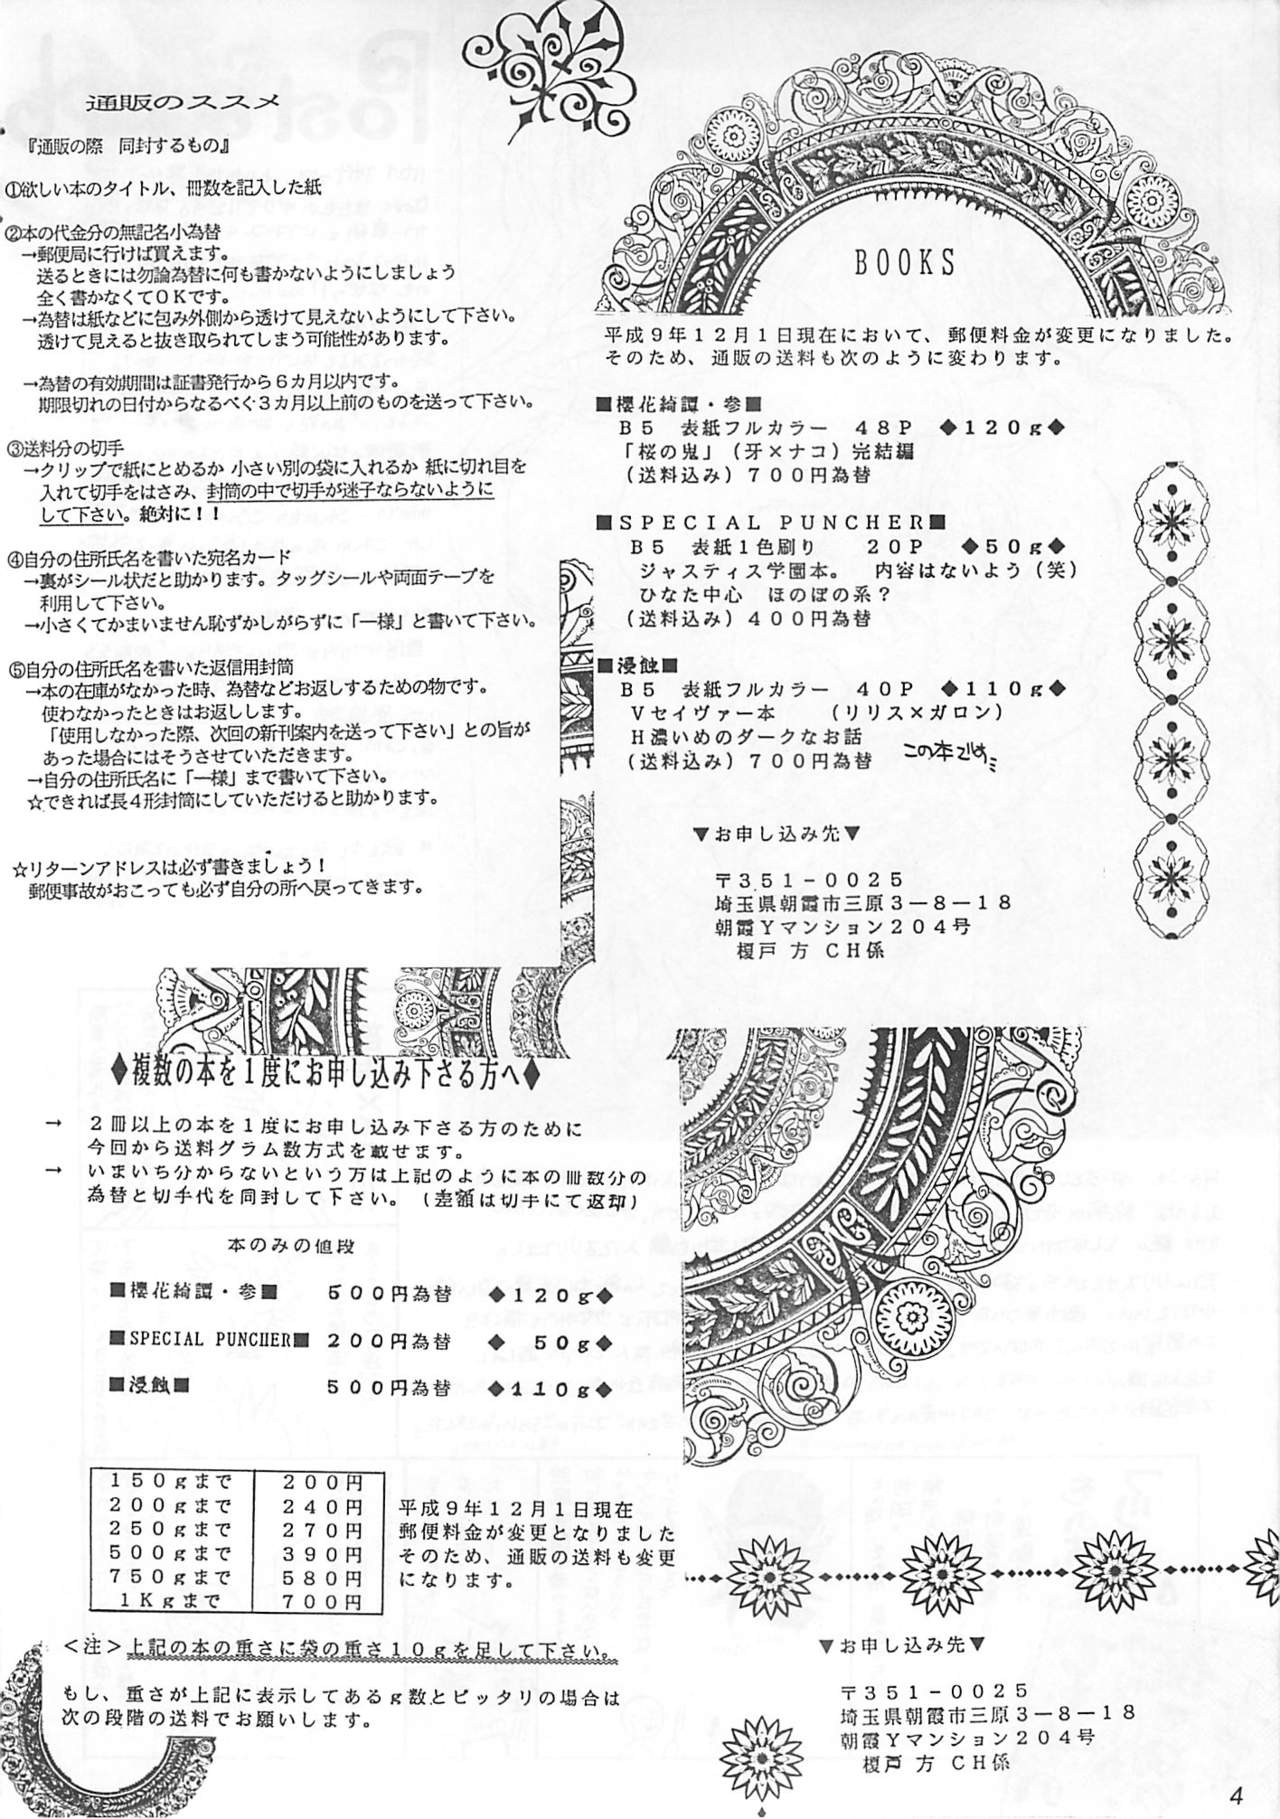 通販のススメ
『通販の際　同封するもの』
①欲しい本のタイトル、冊数を記入した紙
②本の代金分の無記名小為替
→郵便局に行けば買えます。
送るときには勿論為替に何も書かないようにしましょう
全く書かなくてＯＫです。
→為替は紙などに包み外側から透けて見えないようにして下さい。
透けて見えると抜き取られてしまう可能性があります。
→為替の有効期間は証書発行から６カ月以内です。
期限切れの日付からなるべく３カ月以上前のものを送って下さい。
③送料分の切手
→クリップで紙にとめるか 小さい別の袋に入れるか 紙に切れ目を
入れて切手をはさみ、封筒の中で切手が迷子ならないように
して下さい。絶対に！！
④自分の住所氏名を書いた宛名カード
→裏がシール状だと助かります。タッグシールや両面テープを
利用して下さい。
→小さくてかまいません恥ずかしがらずに「―様」と書いて下さい。
⑤自分の住所氏名を書いた返信用封筒
→本の在庫がなかった時、為替などお返しするための物です。
使わなかったときはお返しします。
「使用しなかった際、次回の新刊案内を送って下さい」との旨が
あった場合にはそうさせていただきます。
→自分の住所氏名に「―様」まで書いて下さい。
☆できれば長４形封筒にしていただけると助かります。
☆リターンアドレスは必ず書きましょう！
郵便事故がおこっても必ず自分の所へ戻ってきます。
BOOKS
平成９年１２月１日現在において、郵便料金が変更になりました。
そのため、通販の送料も次のように変わります。
■櫻花綺譚・参■
Ｂ５　表紙フルカラー　４８Ｐ　◆１２０ｇ◆
「桜の鬼」（牙×ナコ）完結編
（送料込み）７００円為替
■ＳＰＥＣＩＡＬ ＰＵＮＣＨＥＲ■
Ｂ５　表紙１色刷り　２０Ｐ　◆５０ｇ◆
ジャスティス学園本。　内容はないよう（笑）
ひなた中心　ほのぼの系？
（送料込み）４００円為替
■浸蝕■
Ｂ５　表紙フルカラー　４０Ｐ　◆１１０ｇ◆
Ｖセイヴァー本　　（リリス×ガロン）
Ｈ濃いめのダークなお話
（送料込み）７００円為替
▼お申し込み先▼
〒３５１－００２５
埼玉県朝霞市三原３－８－１８
朝霞Ｙマンション２０４号
榎戸 方 ＣＨ係
◆複数の本を１度にお申し込み下さる方へ◆
→　２冊以上の本を１度にお申し込み下さる方のために
今回から送料グラム数方式を載せます。
→　いまいち分からないという方は上記のように本の冊数分の
為替と切手代を同封して下さい。（差額は切手にて返却）
本のみの値段
■櫻花綺譚・参■　５００円為替　◆１２０ｇ◆
■SPECIAL PUNCHER■　２００円為替　◆　５０ｇ◆
■浸蝕■　５００円為替　◆１１０ｇ◆
１５０ｇまで　２００円
２００ｇまで　２４０円
２５０ｇまで　２７０円
５００ｇまで　３９０円
７５０ｇまで　５８０円
１Ｋｇまで　７００円
平成９年１２月１日現在
郵便料金が変更となりました
そのため、通販の送料も変更
になります。
＜注＞上記の本の重さに袋の重さ１０ｇを足して下さい。
もし、重さが上記に表示してあるｇ数とピッタリの場合は
次の段階の送料でお願いします。
▼お申し込み先▼
〒３５１－００２５
埼玉県朝霞市三原３－８－１８
朝霞Ｙマンション２０４号
榎戸 方 ＣＨ係
4